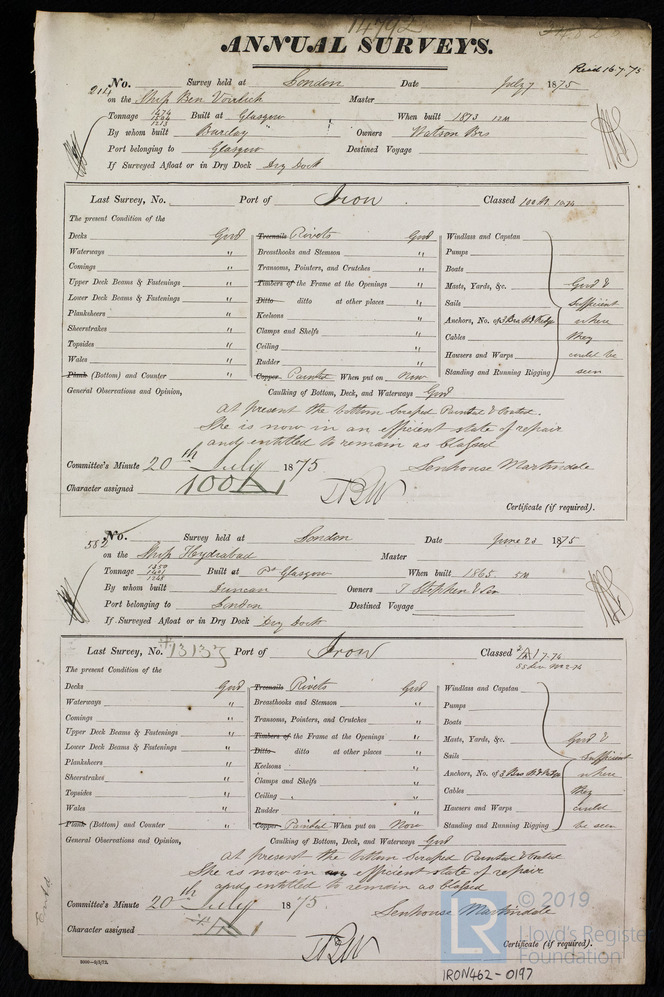 14792
ANNUAL SURVEYS.
Recd 16.7.75
214 No. Survey held at London Date July 7 1875
on the Ship Ben Voirlich Master
Tonnage 1474 Built at Glasgow When built 1873 12M
1213
By whom built Barclay Owners Watson Brs
Port belonging to Glasgow Destined Voyage
If Surveyed Afloat or in Dry Dock Dry Dock
Last Survey, No. Port of Iron Classed 100A
The present Condition of the
Decks Good Treenails Rivets Good Windlass and Capstan
Waterways " Breasthooks and Stemson " Pumps
Comings " Transoms, Pointers, and Crutches " Boats
Upper Deck Beams & Fastenings " Timbers of the Frame at the Openings " Masts, Yards, &c. Good &
Lower Deck Beams & Fastenings " Ditto ditto at other places " Sails Sufficient
Planksheers " Keelsons " Anchors, No. of 3 Brs St & Kedge where
Sheerstrakes " Clamps and Shelfs " Cables they
Topsides " Ceiling " Hawsers and Warps could be
Wales " Rudder " Standing and Running Rigging seen
Plank (Bottom) and Counter " Copper Painted When put on Now
General Observations and Opinion, Caulking of Bottom, Deck, and Waterways Good
At present the bottom Scraped Painted & Coated.
She is now in an efficient state of repair
and entitled to remain as Classed
Committee's Minute 20th July 1875 Senhouse Martindale
Character assigned 100A1
Certificate (if required).
582 No. Survey held at London Date June 23 1875
on the Ship Hydrabad Master
Tonnage 1350 Built at Pt Glasgow When built 1865 5M
1248
By whom built Duncan Owners T Stephen & Son
Port belonging to London Destined Voyage
If Surveyed Afloat or in Dry Dock Dry Dock
Last Survey, No. 13135 Port of Iron Classed A1 7.74
The present Condition of the
Decks Good Treenails Rivets Good Windlass and Capstan
Waterways " Breasthooks and Stemson " Pumps
Comings " Transoms, Pointers, and Crutches " Boats
Upper Deck Beams & Fastenings " Timbers of the Frame at the Openings " Masts, Yards, &c. Good &
Lower Deck Beams & Fastenings " Ditto ditto at other places " Sails Sufficient
Planksheers " Keelsons " Anchors, No. of 3 Brs St & Kedge where
Sheerstrakes " Clamps and Shelfs " Cables they
Topsides " Ceiling " Hawsers and Warps could
Wales " Rudder " Standing and Running Rigging be seen
Plank (Bottom) and Counter " Copper Painted When put on Now
General Observations and Opinion, Caulking of Bottom, Deck, and Waterways Good
At present the bottom Scraped Painted & Coated
She is now in an efficient state of repair
and entitled to remain as Classed
Committee's Minute 20th July 1875. Senhouse Martindale
Character assigned A1
Certificate (if required).
© 2019
LR Lloyd's Register
Foundation
IRON462-0197